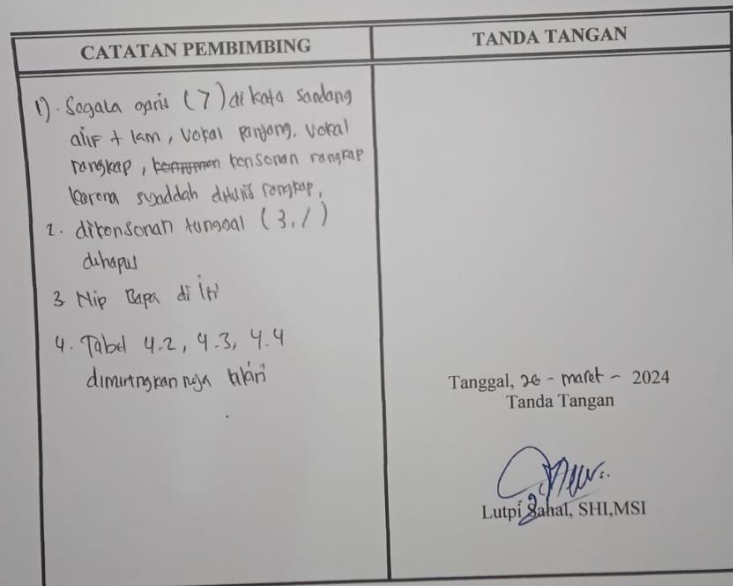 CATATAN PEMBIMBING
TANDA TANGAN
1). Segala garis (7) di kata sandang
alif + lam, vokal panjang, vokal
rangkap, konsonan rangkap
karena syaddah ditulis rangkap,
2. dikonsonan tunggal (3. / )
dihapus
3 Nip Bapa di
4. Tabel 4.2, 4.3, 4.4
Tanggal, 26 - maret - 2024
Tanda Tangan
Lutpi Sahal, SHI,MSI